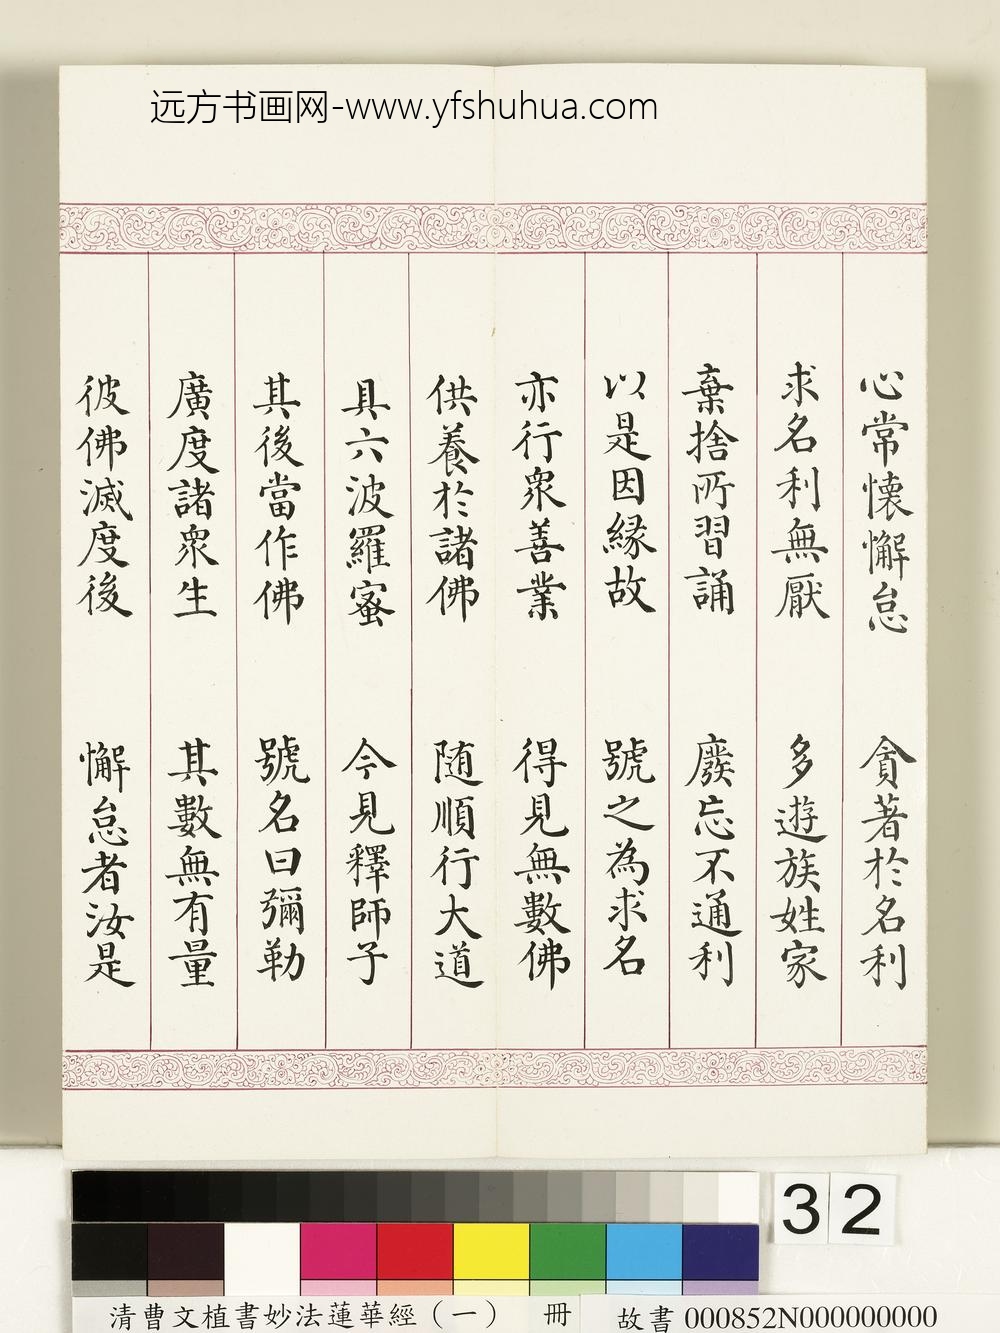 远方书画网-www.yfshuhua.com
心常懐懈怠 貪著於名利
求名利無厭 多遊族姓家
棄捨所習誦 廢忘不通利
以是因緣故 號之為求名
亦行衆善業 得見無數佛
供養於諸佛 随順行大道
具六波羅蜜 今見釋師子
其後當作佛 號名曰彌勒
廣度諸衆生 其數無有量
彼佛滅度後 懈怠者汝是
32
清曹文植書妙法蓮華經（一） 冊 故書000852N000000000